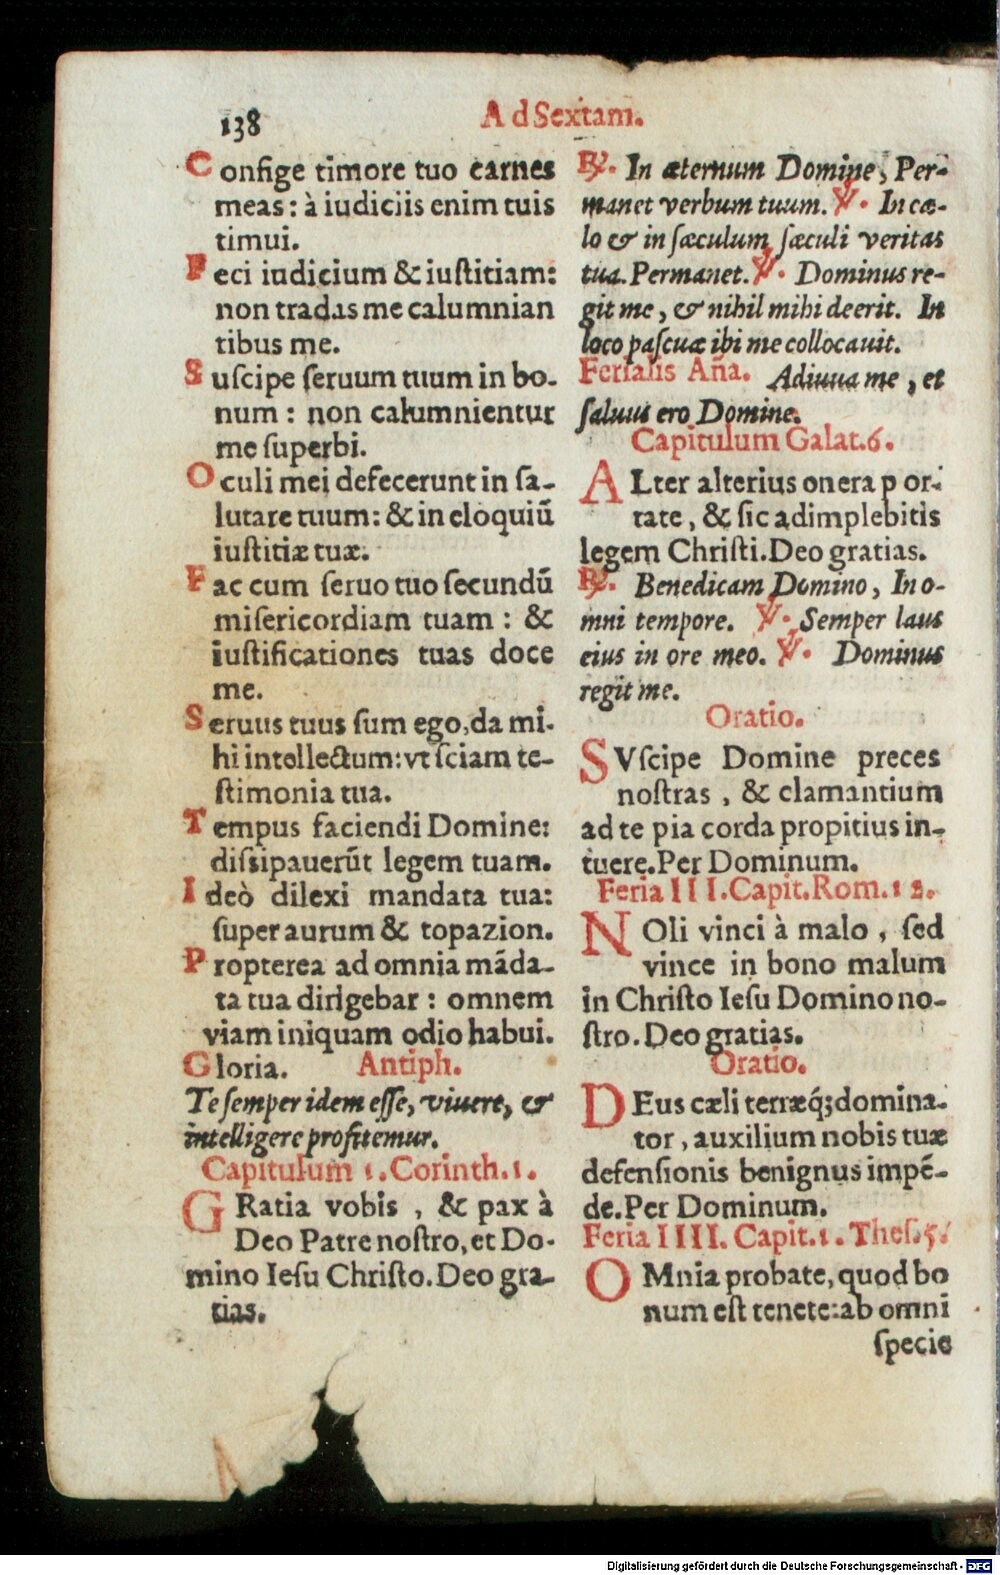 138
Ad Sextam.
Confige timore tuo carnes
meas: à iudiciis enim tuis
timui.
Feci iudicium & iuſtitiam:
non tradas me calumnian
tibus me.
Suſcipe ſeruum tuum in bo-
num: non calumnientur
me ſuperbi.
Oculi mei defecerunt in ſa-
lutare tuum: & in eloquiū
iuſtitiæ tuæ.
Fac cum ſeruo tuo ſecundū
miſericordiam tuam: &
iuſtificationes tuas doce
me.
Seruus tuus ſum ego, da mi-
hi intellectum: vt ſciam te-
ſtimonia tua.
Tempus faciendi Domine:
diſsipauerūt legem tuam.
Ideò dilexi mandata tua:
ſuper aurum & topazion.
Propterea ad omnia māda-
ta tua dirigebar: omnem
viam iniquam odio habui.
Gloria. Antiph.
Te ſemper idem eſſe, viuere, &
intelligere profitemur.
Capitulum 1. Corinth. 1.
GRatia vobis, & pax à
Deo Patre noſtro, et Do-
mino Ieſu Chriſto. Deo gra-
tias.
℞. In æternum Domine, Per-
manet verbum tuum. ℣. In cæ-
lo & in ſæculum ſæculi veritas
tua. Permanet. ℣. Dominus re-
git me, & nihil mihi deerit. In
loco paſcuæ ibi me collocauit.
Ferialis Aña. Adiuua me, et
ſaluus ero Domine.
Capitulum Galat. 6.
ALter alterius onera por-
tate, & ſic adimplebitis
legem Chriſti. Deo gratias.
℞. Benedicam Domino, In o-
mni tempore. ℣. Semper laus
eius in ore meo. ℣. Dominus
regit me.
Oratio.
SVſcipe Domine preces
noſtras, & clamantium
ad te pia corda propitius in-
tuere. Per Dominum.
Feria III. Capit. Rom. 12.
NOli vinci à malo, ſed
vince in bono malum
in Chriſto Ieſu Domino no-
ſtro. Deo gratias.
Oratio.
DEus cæli terræq́; domina-
tor, auxilium nobis tuæ
defenſionis benignus impē-
de. Per Dominum.
Feria IIII. Capit. 1. Theſ. 5.
OMnia probate, quod bo
num eſt tenete: ab omni
ſpecie
Digitalisierung gefördert durch die Deutsche Forschungsgemeinschaft - DFG